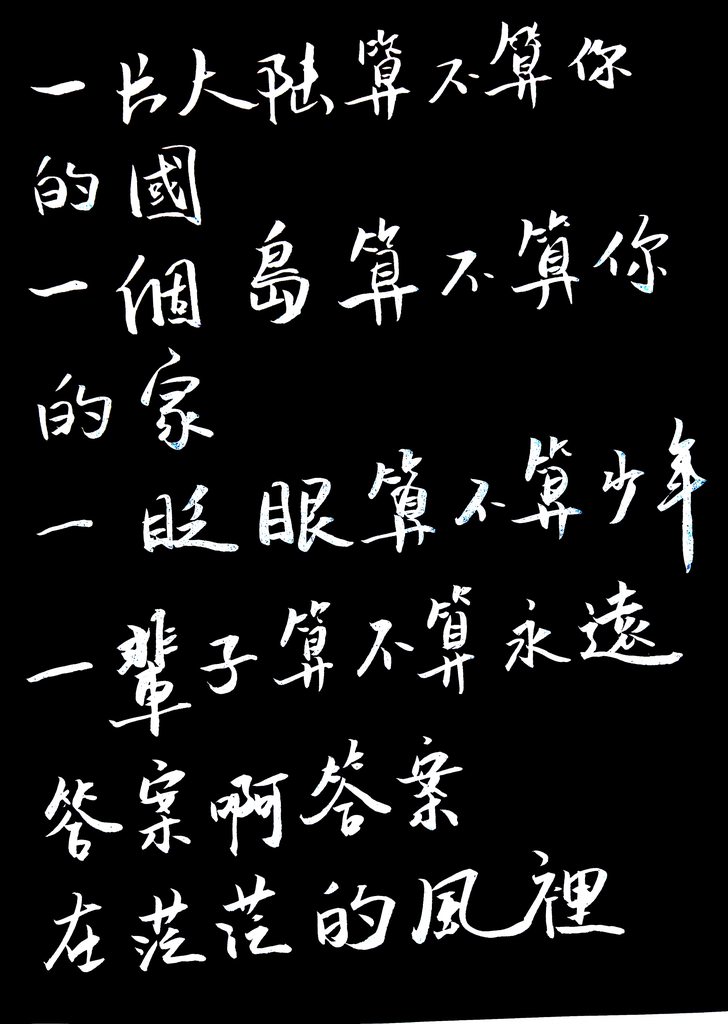 一片大陸算不算你
的國
一個島算不算你
的家
一眨眼算不算少年
一輩子算不算永遠
答案啊答案
在茫茫的風裡